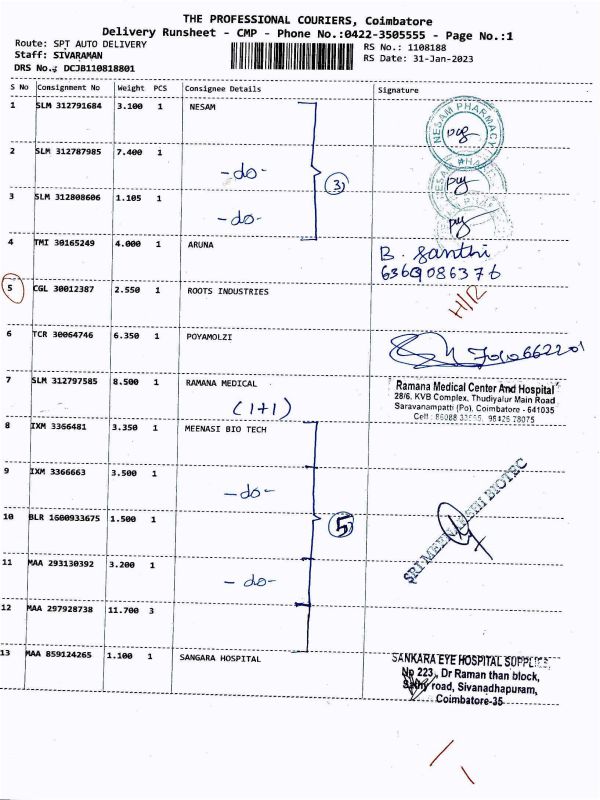 THE PROFESSIONAL COURIERS, Coimbatore
Delivery Runsheet - CMP - Phone No.:0422-3505555 - Page No.:1
Route: SPT AUTO DELIVERY
RS No.: 1108188
Staff: SIVARAMAN
RS Date: 31-Jan-2023
DRS No.: DCJB110818801
S No Consignment No Weight PCS Consignee Details Signature
1 SLM 312791684 3.100 1 NESAM
NESAM PHARMACY
2 SLM 312787985 7.400 1
-do-
3
3 SLM 312808606 1.105 1
-do-
4 TMI 30165249 4.000 1 ARUNA
B. Santhi
6369086376
5 CGL 30012387 2.550 1 ROOTS INDUSTRIES
6 TCR 30064746 6.350 1 POYAMOLZI
7 SLM 312797585 8.500 1 RAMANA MEDICAL
(1+1)
Ramana Medical Center And Hospital
28/6, KVB Complex, Thudiyalur Main Road
Saravanampatti (Po), Coimbatore - 641035
8 IXM 3366481 3.350 1 MEENASI BIO TECH
9 IXM 3366663 3.500 1
-do-
SRI MEENAKSHI BIOTEC
10 BLR 1600933675 1.500 1
5
11 MAA 293130392 3.200 1
-do-
12 MAA 297928738 11.700 3
13 MAA 859124265 1.100 1 SANGARA HOSPITAL
SANKARA EYE HOSPITAL SUPPLIES
Np 223, Dr Raman than block,
Sathy road, Sivanadhapuram,
Coimbatore-35